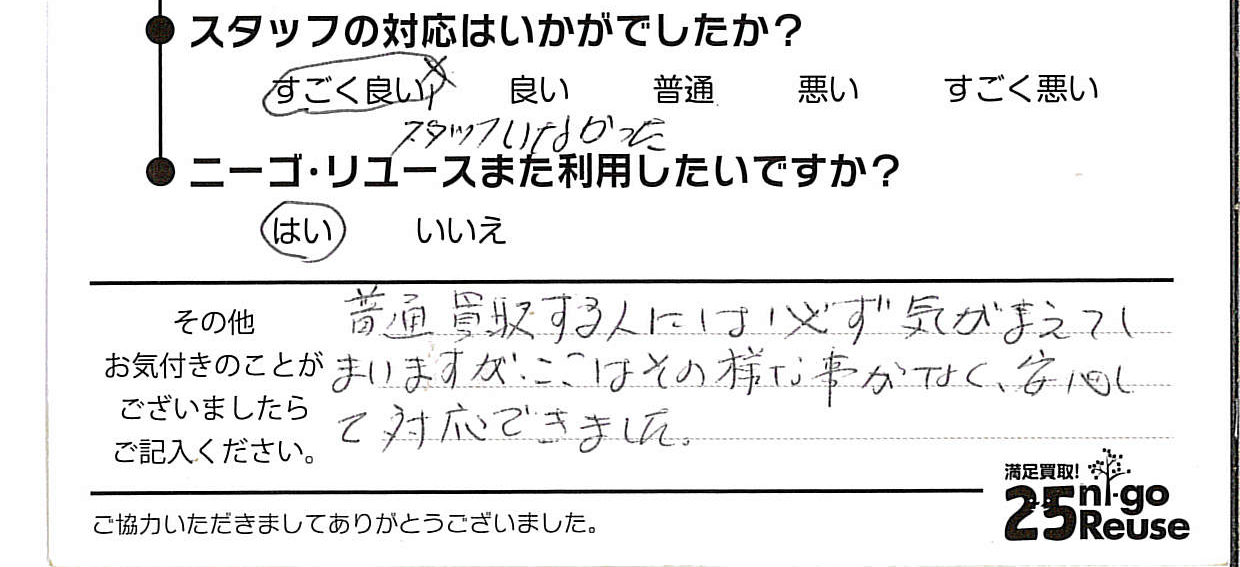 スタッフの対応はいかがでしたか?
すごく良い 良い 普通 悪い すごく悪い
スタッフいなかった
ニーゴ・リユースまた利用したいですか?
はい いいえ
その他
お気付きのことが
ございましたら
ご記入ください。
普通買収する人には必ず気がまえてし
まいますが、ここはその様な事がなく、安心し
て対応できました。
満足買取!
25 ni-go
Reuse
ご協力いただきましてありがとうございました。